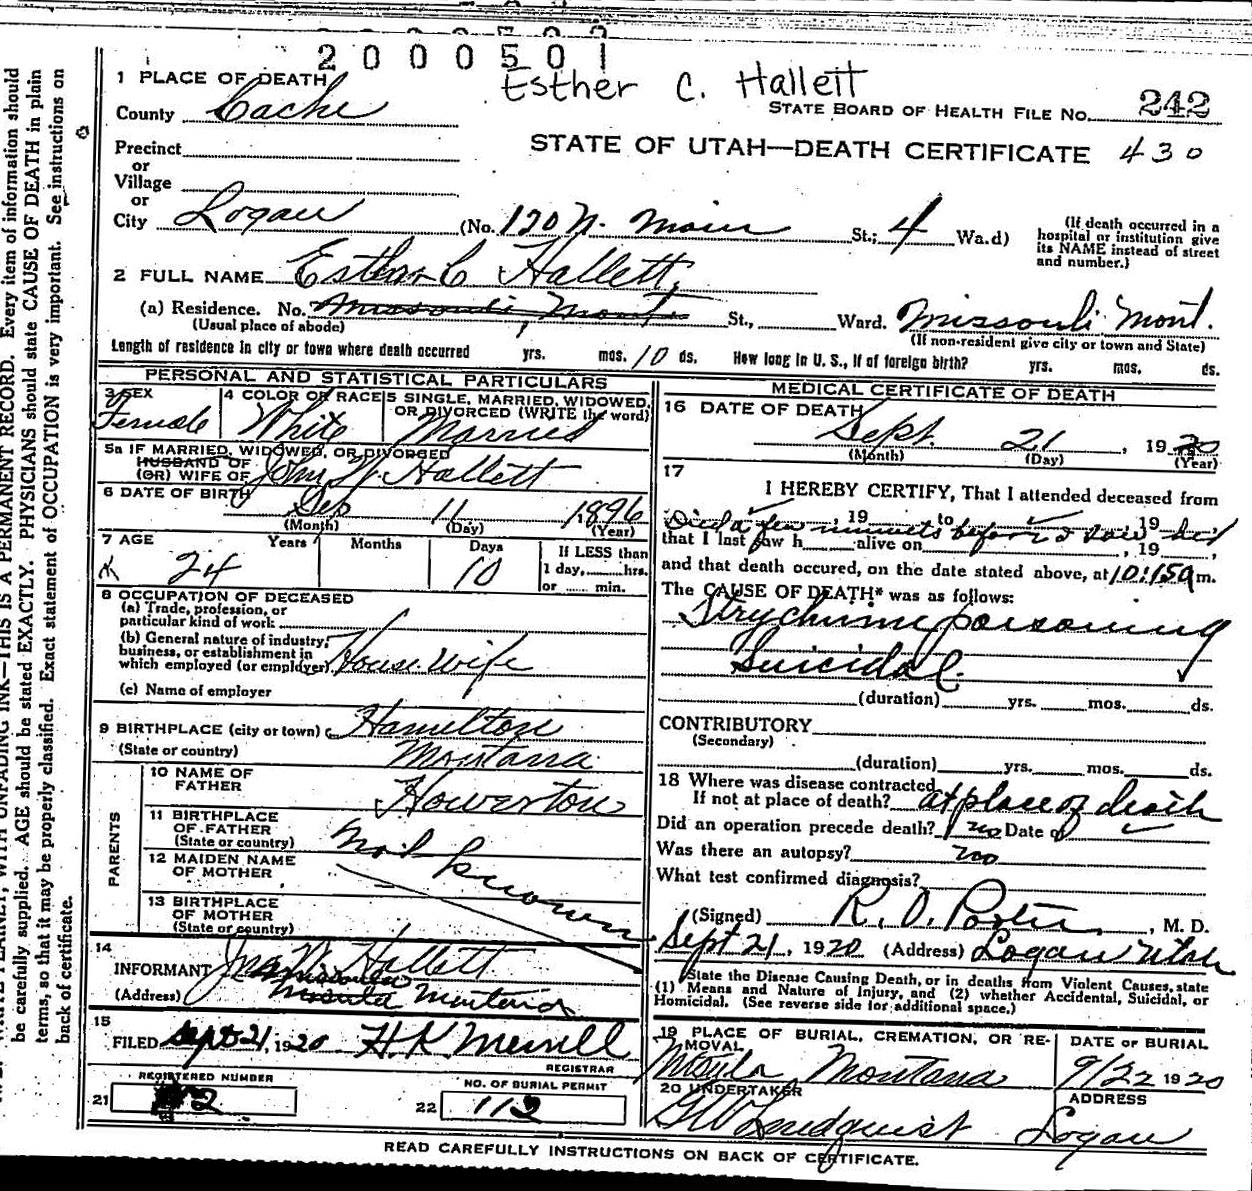 2000501
Esther C. Hallett
1 PLACE OF DEATH
STATE BOARD OF HEALTH FILE No. 242
County Cache
STATE OF UTAH—DEATH CERTIFICATE 430
Precinct
or
Village
or
City Logan (No. 120 N. Main St.; 4 Wa.d)
(If death occurred in a
hospital or institution give
its NAME instead of street
and number.)
2 FULL NAME Esther C Hallett
(a) Residence. No. Missouli, Mont St., Ward. Missouli Mont.
(Usual place of abode)
(If non-resident give city or town and State)
Length of residence in city or town where death occurred yrs. mos. 10 ds. How long in U. S., if of foreign birth? yrs. mos. ds.
PERSONAL AND STATISTICAL PARTICULARS
3 SEX 4 COLOR OR RACE 5 SINGLE, MARRIED, WIDOWED,
OR DIVORCED (WRITE the word)
Female White Married
5a IF MARRIED, WIDOWED, OR DIVORCED
HUSBAND OF
(OR) WIFE OF Jno. W. Hallett
6 DATE OF BIRTH Sep 11 1896
(Month) (Day) (Year)
7 AGE Years Months Days If LESS than
1 day, hrs.
or min.
24 10
8 OCCUPATION OF DECEASED
(a) Trade, profession, or
particular kind of work
(b) General nature of industry,
business, or establishment in
which employed (or employer) House wife
(c) Name of employer
9 BIRTHPLACE (city or town) Hamilton
(State or country) Montana
PARENTS
10 NAME OF
FATHER Howerton
11 BIRTHPLACE
OF FATHER
(State or country)
Not known
12 MAIDEN NAME
OF MOTHER
13 BIRTHPLACE
OF MOTHER
(State or country)
14
INFORMANT Jno W Hallett
(Address) Missoula Montana
15
FILED Sept 21, 1920 H. K. Merrill
REGISTRAR
REGISTERED NUMBER
21 2
NO. OF BURIAL PERMIT
22 112
MEDICAL CERTIFICATE OF DEATH
16 DATE OF DEATH
Sept. 21, 1920
(Month) (Day) (Year)
17
I HEREBY CERTIFY, That I attended deceased from
, 19 to , 19
Died a few minuets before I saw her
that I last saw h alive on , 19 ,
and that death occured, on the date stated above, at 10:15 a m.
The CAUSE OF DEATH* was as follows:
Strychnine poisoning
Suicidal.
(duration) yrs. mos. ds.
CONTRIBUTORY
(Secondary)
(duration) yrs. mos. ds.
18 Where was disease contracted
If not at place of death? at place of death
Did an operation precede death? no Date of
Was there an autopsy? no
What test confirmed diagnosis?
(Signed) R. O. Porter, M. D.
Sept 21, 1920 (Address) Logan Utah
*State the Disease Causing Death, or in deaths from Violent Causes, state
(1) Means and Nature of Injury, and (2) whether Accidental, Suicidal, or
Homicidal. (See reverse side for additional space.)
19 PLACE OF BURIAL, CREMATION, OR RE-
MOVAL DATE OF BURIAL
Montana 9/22 1920
20 UNDERTAKER ADDRESS
GW Lindquist Logan
READ CAREFULLY INSTRUCTIONS ON BACK OF CERTIFICATE.
WITH UNFADING INK—THIS IS A PERMANENT RECORD. Every item of information should
be carefully supplied. AGE should be stated EXACTLY. PHYSICIANS should state CAUSE OF DEATH in plain
terms, so that it may be properly classified. Exact statement of OCCUPATION is very important. See instructions on
back of certificate.